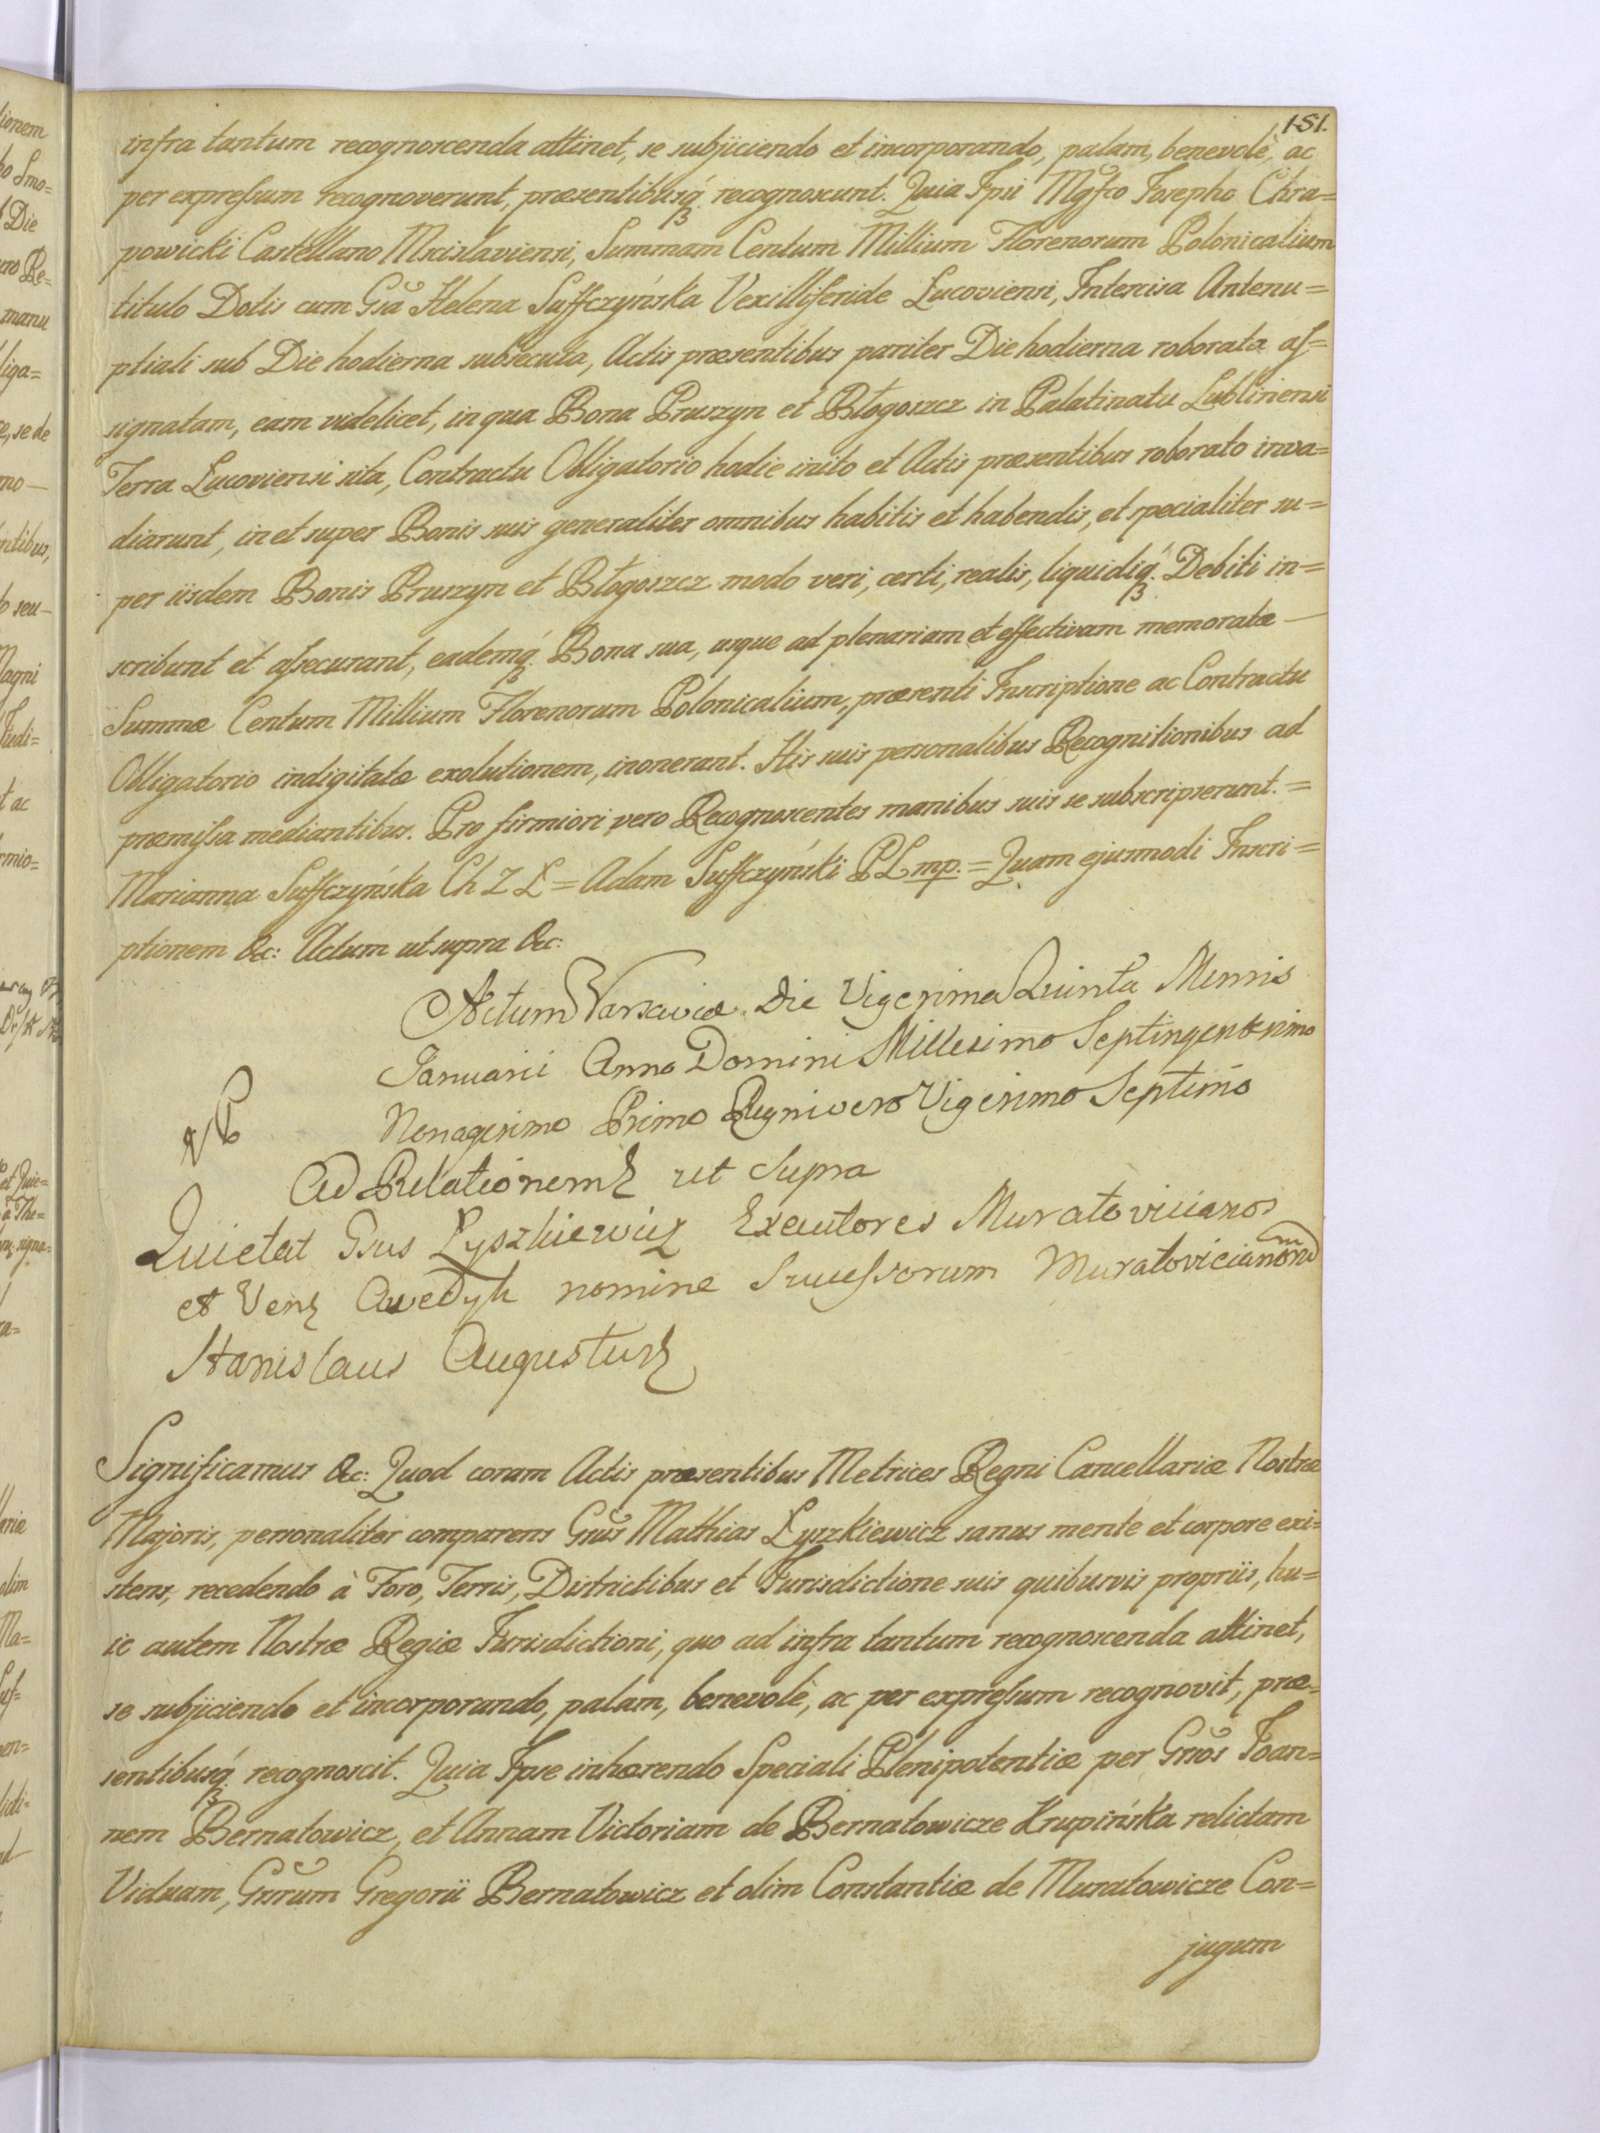 151.
infra tantum recognoscenda attinet, se subjiciendo et incorporando, palam, benevolè, ac
per expressum recognoverunt, præsentibusq́ recognoscunt. Quia Ipsi Mgfco Josepho Chra=
powicki Castellano Mscislaviensi, Summam Centum Millium Florenorum Polonicalium
titulo Dotis cum Gsa Helena Suffczyńska Vexilliferide Lucoviensi, Intercisa Antenu=
ptiali sub Die hodierna subsecuta, Actis præsentibus pariter Die hodierna roborata as=
signatam, eam videlicet, in qua Bona Pruszyn et Błogoszcz in Palatinatu Lublinensi
Terra Lucoviensi sita, Contractu Obligatorio hodie inito et Actis præsentibus roborato inva=
diarunt, in et super Bonis suis generaliter omnibus habitis et habendis, et specialiter su=
per iisdem Bonis Pruszyn et Błogoszcz modo veri, certi, realis, liquidiq́ Debiti in=
scribunt et assecurant, eademq́ Bona sua, usque ad plenariam et effectivam memoratæ —
Summæ Centum Millium Florenorum Polonicalium, præsenti Inscriptione ac Contractu
Obligatorio indigitatæ exolutionem, inonerant. His suis personalibus Recognitionibus ad
præmissa mediantibus. Pro firmiori vero Recognoscentes manibus suis se subscripserunt. =
Marianna Suffczyńska Ch Z Ł = Adam Suffczyński PŁ mp. = Quam ejusmodi Inscri=
ptionem &c: Actum ut supra &c:
Actum Varsaviæ Die Vigesima Quinta Mensis
Januarii Anno Domini Millesimo Septingentesimo
Nonagesimo Primo Regni vero Vigesimo Septimo
Ad Relationem ut supra
Quietat Gsus Łyszkiewicz Exeutores Muratovicianos
et Ven Awedyk nomine Successorum Muratovicianom
Stanislaus Augustus
Significamus &c: Quod coram Actis præsentibus Metrices Regni Cancellariæ Nostræ
Majoris, personaliter comparens Gsus Mathias Łyszkiewicz sanus mente et corpore exi=
stens, recedendo à Foro, Terris, Districtibus et Jurisdictione suis quibusvis propriis, hu=
ic autem Nostræ Regiæ Jurisdictioni, quo ad infra tantum recognoscenda attinet,
se subjiciendo et incorporando, palam, benevolè, ac per expressum recognovit, præ=
sentibusq́ recognoscit. Quia Ipse inhærendo Speciali Plenipotentiæ per Gsos Joan=
nem Bernatowicz, et Annam Victoriam de Bernatowicze Krupińska relictam
Viduam, Gsrum Gregorii Bernatowicz et olim Constantiæ de Muratowicze Con=
jugum